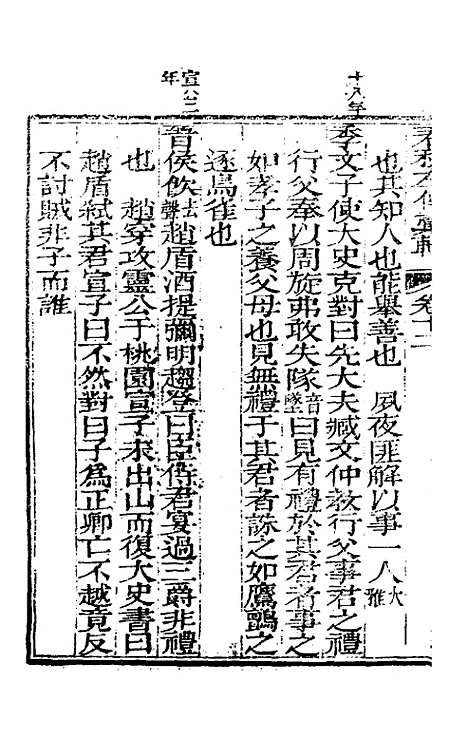 春秋左傳彙輯 卷十二
也其知人也能舉善也　夙夜匪解以事一人大雅
十八年
季文子使大史克對曰先大夫臧文仲敎行父事君之禮
行父奉以周旋弗敢失隊音墜曰見有禮於其君者事之
如孝子之養父母也見無禮于其君者誅之如鷹鸇之
逐鳥雀也
宣公二年
晉侯飲去聲趙盾酒提彌明趨登曰臣侍君宴過三爵非禮
也　趙穿攻靈公于桃園宣子未出山而復大史書曰
趙盾弑其君宣子曰不然對曰子爲正卿亡不越竟反
不討賊非子而誰